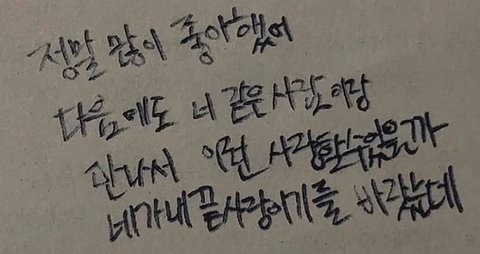 정말 많이 좋아했어
다음에도 너 같은 사람이랑
만나서 이런 사랑할수있을까
네가내끝사랑이기를 바랐는데